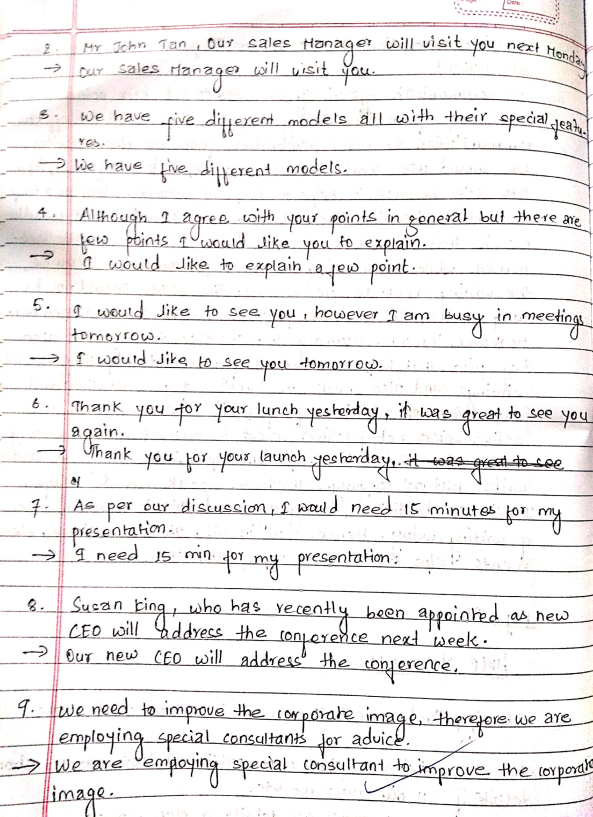 Date
2. Mr John Tan, Our sales Manager will visit you next Monday
→ Our sales Manager will visit you.
3. We have five different models all with their special featu-
res.
→ We have five different models.
4. Although I agree with your points in general but there are
few points I would like you to explain.
→ I would like to explain a few point.
5. I would like to see you, however I am busy in meetings
tomorrow.
→ I would like to see you tomorrow.
6. Thank you for your lunch yesterday, it was great to see you
again.
→ Thank you for your launch yesterday. it was great to see
7. As per our discussion, I would need 15 minutes for my
presentation.
→ I need 15 min for my presentation.
8. Susan King, who has recently been appointed as new
CEO will address the conference next week.
→ Our new CEO will address the conference.
9. We need to improve the corporate image, therefore we are
employing special consultants for advice.
→ We are empoying special consultant to improve the corporate
image.